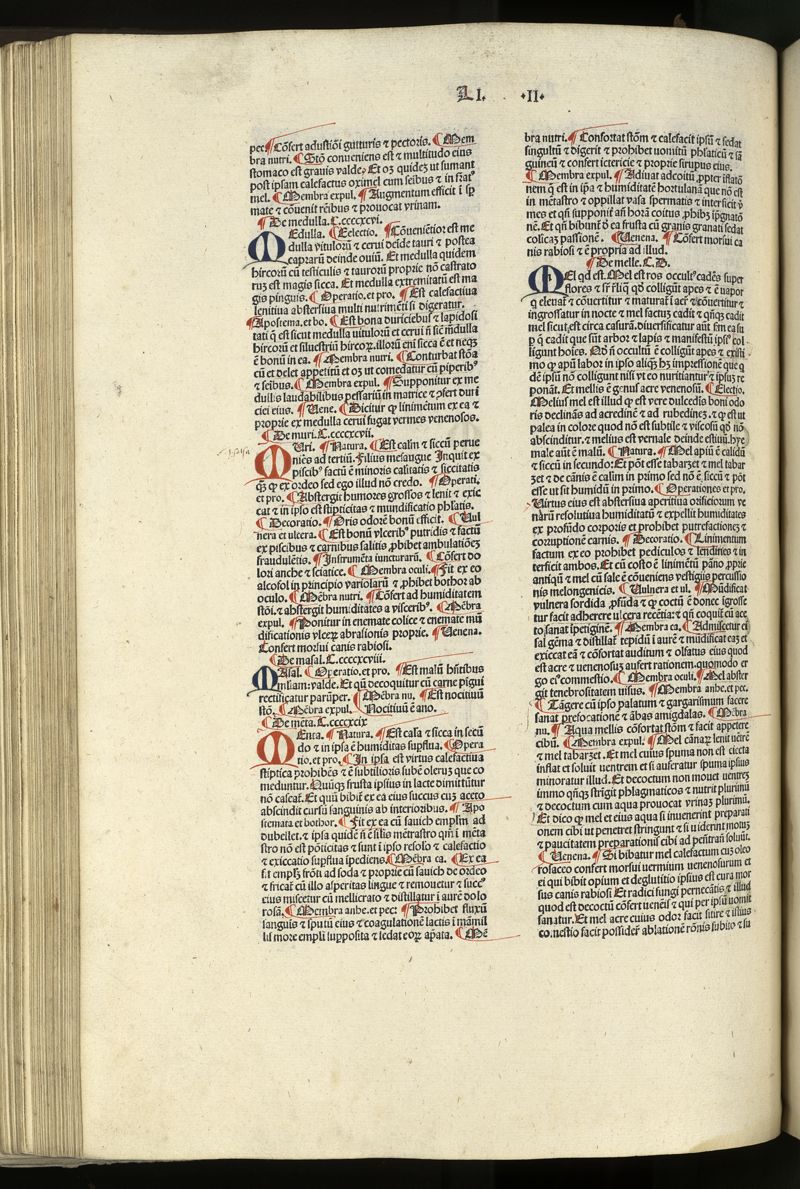 LI. ·II·
pec̄ ¶ Cōfert adustiōi gutturis ⁊ pectoris. ¶ Mem
bra nutri. ¶ Stō conueniens est ⁊ multitudo eius
stomaco est grauis valde. Et oꝫ quideꝫ ut sumant
post ipsam calefactus oximel cum seibus ⁊ in
mel. ¶ Membra expul. ¶ Augmentum efficit ī
mate ⁊ cōuenit rēibus ⁊ prouocat vrinam.
¶ De medulla. C.ccccxcvi.
MEdulla. ¶ Electio. ¶ Cōuenētior est me
dulla vitulorū ⁊ cerui deīde tauri ⁊ postea
caprarū deinde ouiū. Et medulla quidem
hircorū cū testiculis ⁊ taurorū proprie nō castrato
ruꝫ est magis sicca. Et medulla extremitatū est ma
gis pinguis. ¶ Operatio. et pro. ¶ Est calefactiua
lenitiua abstersiua multi nutrimēti si digeratur.
¶ Apostema. et bo. ¶ Est bona duriciebus ⁊ lapidosi
tati q̄ est sicut medulla vitulorū et cerui n̄ sic medulla
hircorū et siluestriū hircoꝝ. illorū eni sicca ē et neqꝫ
ē bonū in ea. ¶ Membra nutri. ¶ Conturbat stōa
cū et delet appetitū et oꝫ ut comedatur cū piperibꝰ
⁊ seibus. ¶ Membra expul. ¶ Supponitur ex me
dullis laudabilibus pessariū in matrice ⁊ ꝯfert duri
ciei eius. ¶ Uene. ¶ Dicitur qꝫ linimētum ex ea ⁊
proprie ex medulla cerui fugat vermes venenosos.
¶ De muri. C.ccccxcvii.
MUri. ¶ Natura. ¶ Est calīm ⁊ siccū perue
niēs ad tertiū. Filius mesaugue Inquit ex
piscibꝰ factū ē minoris caliditatis ⁊ siccitatis
qꝫ qꝫ ex ordeo sed ego illud nō credo. ¶ Operati.
et pro. ¶ Abstergit humores grossos ⁊ lenit ⁊ exic
cat ⁊ in ipso est stipticitas ⁊ mundificatio pslatis.
¶ Decoratio. ¶ Oris odorē bonū efficit. ¶ Uul
nera et ulcera. ¶ Est bonū ylceribꝰ putridis ⁊ factū
ex piscibus ⁊ carnibus salitis ꝓhibet ambulatiōeꝫ
fraudulētis. ¶ Instrumēta iuncturarū. ¶ Cōfert do
lori anche ⁊ sciatice. ¶ Membra oculi. ¶ Fit ex eo
alcofol in principio variolarū ⁊ ꝓhibet bothor ab
oculo. ¶ Mēbra nutri. ¶ Cōfert ad humiditatem
stōi. ⁊ abstergit humiditates a visceribꝰ. ¶ Mēbra
expul. ¶ Ponitur in enemate colice ⁊ enemate mū
dificationis vlceꝝ abrasionis proprie. ¶ Uenena.
Confert morsui canis rabiosi.
¶ De masal. C.ccccxcviii.
MAsal. ¶ Operatio. et pro. ¶ Est malū hn̄tibus
msliam valde. Et qn̄ decoquitur cū carne pīgui
rectificatur parūper. ¶ Mēbra nu. ¶ Est nociuū
stō. ¶ Mēbra expul. ¶ Nociuū ē ano.
¶ De mēta. C.ccccxcix
MEnta. ¶ Natura. ¶ Est cala ⁊ sicca in secū
do ⁊ in ipsa ē humiditas supflua. ¶ Opera
tio. et pro. ¶ In ipsa est virtus calefactiua
stiptica prohibēs ⁊ ē subtilioris sube oleruꝫ que co
meduntur. Qn̄qꝫ frusta ipsius in lacte dimittūtur
nō caseat. Et qn̄ bibit ex ea eius succus cuꝫ aceto
abscindit cursū sanguinis ab interioribus. ¶ Apo
stemata et bothor. ¶ Fit ex ea cū sauich emplm̄ ad
dubellet. ⁊ ipsa quidē n̄ ē sīlis mētrastro qm̄ ī mēta
stro nō est pōticitas ⁊ sunt ī ipso resolo ⁊ calefactio
⁊ exiccatio supflua īpediens. ¶ Mēbra ca. ¶ Ex ea
f.t emplꝫ frōti ad soda ⁊ proprie cū sauich de ordeo
⁊ fricat cū illo asperitas lingue ⁊ remouetur ⁊ succꝰ
eius miscetur cū mellicrato ⁊ distillatur ī aurē dolo
rosā. ¶ Membra anhe. et pec: ¶ Prohibet fluxū
sanguīs ⁊ sputū eius ⁊ coagulationē lactis ī māmil
lis more empli suppoſita ⁊ sedat eoꝝ ap̄ata. ¶ Mē
bra nutri. ¶ Confortat stōm ⁊ calefacit ipsū ⁊ sedat
singultū ⁊ digerit ⁊ prohibet uomitū phlaticū ⁊ sā
guineū ⁊ confert ictericie ⁊ proprie sirupus eius.
¶ Membra expul. ¶ Adiuuat ad coitū ꝓpter istatō
nem q̄ est in ip̄a ⁊ humiditatē hortulanā que nō est
in mētastro ⁊ oppillat vasa spermatis ⁊ interficit v̄
mes et qn̄ supponit̄ an̄ horā coitus ꝓhibꝫ īpgnatō
nē. Et qn̄ bibunt̄ ō ea frusta cū granis granati sedat
colicaꝫ passionē. ¶ Uenena. ¶ Cōfert morsui ca
nis rabiosi ⁊ ē propria ad illud.
¶ De melle. C. D.
MEl qd est. Mel est ros occultꝰ cadēs super
flores ⁊ sr̄ r̄liq̄ qd̄ colligūt apes ⁊ ē uapor
q̄ eleuat̄ ⁊ cōuertitur ⁊ maturat̄ ī aer̄ ⁊ cōuertitur ⁊
ingrossatur in nocte ⁊ mel factuꝫ cadit ⁊ qn̄qꝫ cadit
mel sicut est circa casurā. diuersificatur aūt sm̄ ea su
p̄ q̄ cadit que sūt arbor ⁊ lapis ⁊ manifestū ipsiꝰ col
ligunt hoīes. Nō n̄ occultū ē colligūt apes ⁊ existi
mo qꝫ apū labor in ipso aliqꝫ hꝫ impressionē que q
dē ipsū nō colligunt nisi vt eo nutriantur̄ ⁊ ipsuꝫ re
ponāt. Et mellis ē gꝫnus acre venenosū. ¶ Electio.
Melius mel est illud qꝫ est vere dulcedīs boni odo
ris declinās ad acredinē ⁊ ad rubedineꝫ. ⁊ qꝫ est ut
palea in colore quod nō est subtile ⁊ viscosū qd̄ nō
abscinditur. ⁊ melius est vernale deinde estiuū. hye
male aūt ē malū. ¶ Natura. ¶ Mel apiū ē calidū
⁊ siccū in secundo: Et pōt esse tabarzet ⁊ mel tabar
zet ⁊ de cānis ē calim in primo sed nō ē siccū ⁊ pōt
esse ut sit humidū in primo. ¶ Operationes et pro.
¶ Uirtus eius est abstersiua aperitiua orificiorum ve
narū resolutiua humiditatū ⁊ expellit humiditates
ex profūdo corporis et prohibet putrefactioneꝫ ⁊
corruptionē carnis. ¶ Decoratio. ¶ Linimentum
factum ex eo prohibet pediculos ⁊ lendines ⁊ in
terficit ambos. Et cū costo ē linimētū pāno ꝓprie
antiqū ⁊ mel cū sale ē cōueniens vestigiis percussio
nis melongenicis. ¶ Uulnera et ul. ¶ Mūdificat
vulnera sordida ꝓfūda ⁊ qꝫ coctū ē donec īgrosse
tur facit adherere ulcera recētia: ⁊ qn̄ coquit cū ace
to sanat ipetiginē. ¶ Membra ca. ¶ Admiscetur ei
sal gēma ⁊ distillat̄ tepidū ī aurē ⁊ mūdificat eaꝫ et
exiccat eā ⁊ cōfortat auditum ⁊ olfatus eius quod
est acre ⁊ uenenosuꝫ aufert rationem. quomodo er
go eiꝰ commestio. ¶ Membra oculi. ¶ Mel abster
git tenebrositatem uisus. ¶ Membra anhe. et pec.
¶ Tāgere cū ipso palatum ⁊ gargarismum facere
sanat prefocationē ⁊ ābas amigdalas. ¶ Mēbra
nu. ¶ Aqua mellis cōfortat stōm ⁊ facit appetere
cibū. ¶ Membra expul. ¶ Mel cānaꝝ lenit uētrē
⁊ mel tabarzet. Et mel cuius spuma non est eiecta
inflat et soluit uentrem et si auferatur spuma ipsius
minoratur illud. Et decoctum non mouet uentreꝫ
immo qn̄qꝫ strigit phlagmaticos ⁊ nutrit plurimū
⁊ decoctum cum aqua prouocat vrinaꝫ plurimū.
Et dico qꝫ mel et eius aqua si inuenerint preparati
onem cibi ut penetret stringunt ⁊ si uiderint motuꝫ
⁊ paucitatem preparationis cibi ad penetrān̄ soluūt.
¶ Uenena. ¶ Si bibatur mel calefactum cuꝫ oleo
rosaceo confert morsui uermium uenenosum et
ei qui bibit opium et deglutitio ipsius est cura mor
sus canis rabiosi Et radici fungi pernecātis ⁊ illud
quod est decoctū cōfert uenēis ⁊ qui per ipsū uomit
sanatur. Et mel acre cuius odor facit sitire ⁊ istius
co.nestio facit possideri ablationē rōnis subito ⁊ su